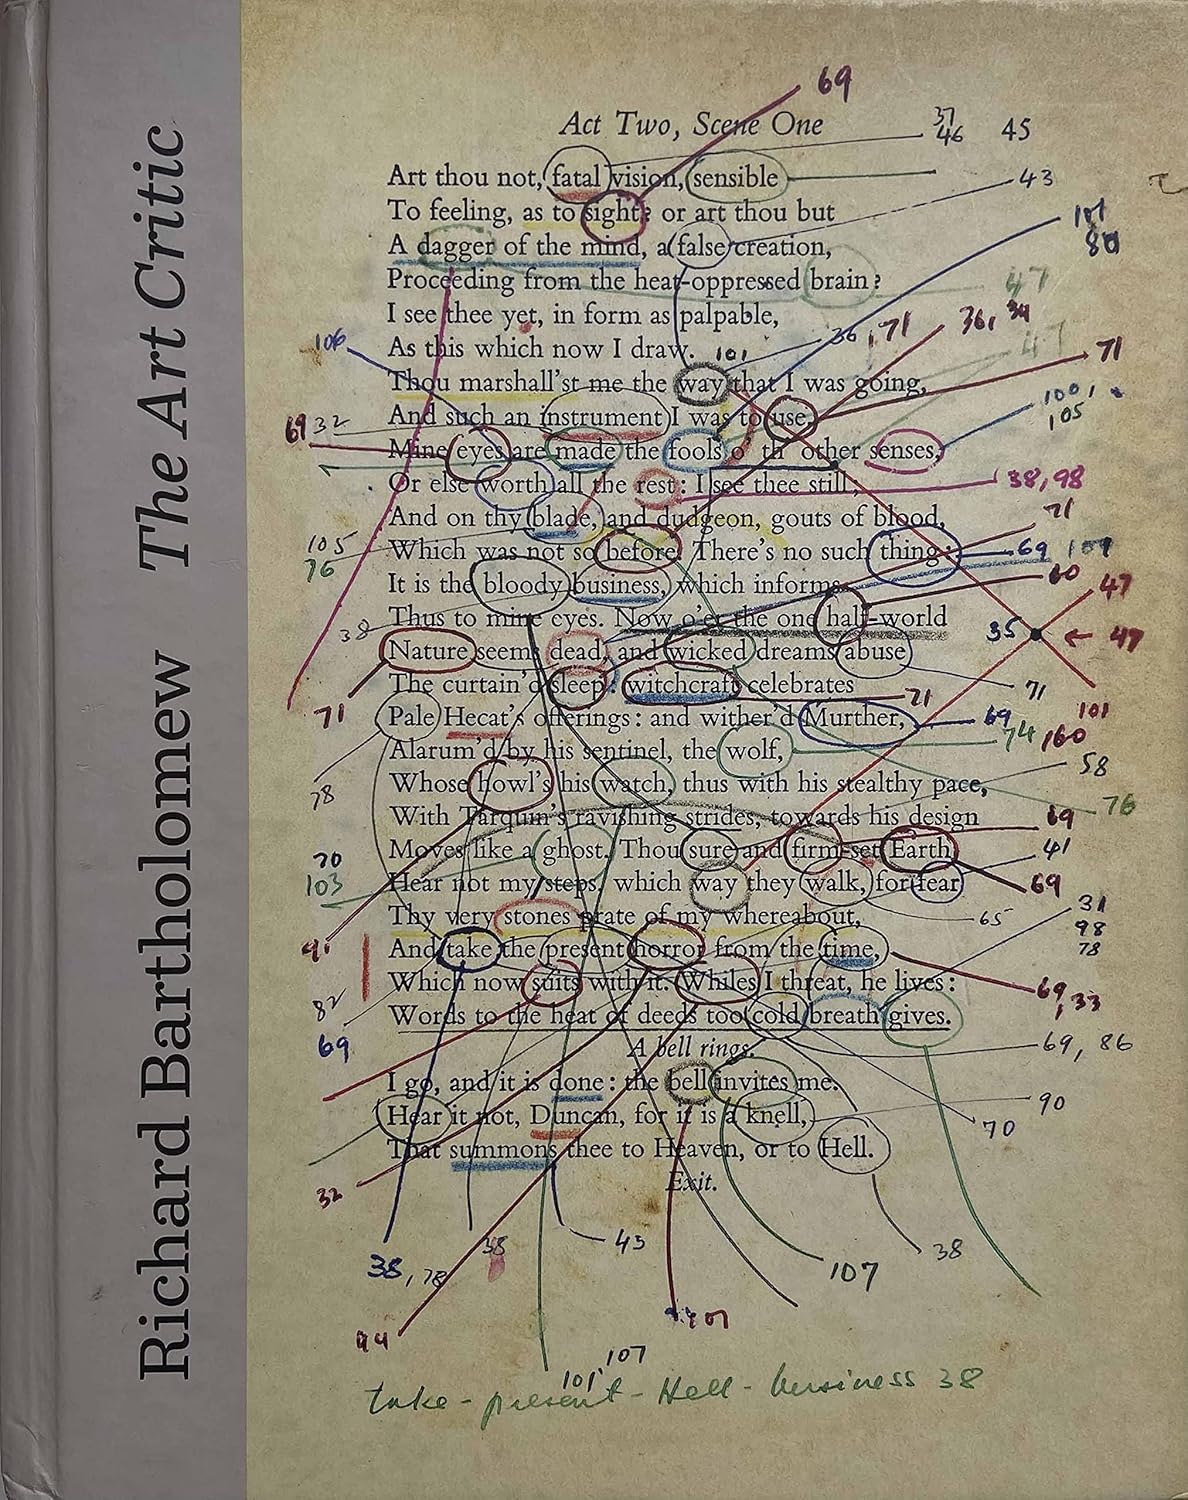 Richard Bartholomew The Art Critic
69
Act Two, Scene One 37 46 45
Art thou not, fatal vision, sensible
43
To feeling, as to sight? or art thou but
101
A dagger of the mind, a false creation,
80
Proceeding from the heat-oppressed brain?
47
I see thee yet, in form as palpable,
36, 34
106 As this which now I draw. 101 36, 71
47 71
Thou marshall'st me the way that I was going,
100, 105
69 32 And such an instrument I was to use.
Mine eyes are made the fools o' th' other senses,
Or else worth all the rest: I see thee still;
38, 98
And on thy blade, and dudgeon, gouts of blood,
71
105 76 Which was not so before. There's no such thing:
69 109
It is the bloody business, which informs
60 47
38 Thus to mine eyes. Now o'er the one half-world
35 ← 47
Nature seems dead, and wicked dreams abuse
The curtain'd sleep: witchcraft celebrates
71
71 Pale Hecat's offerings: and wither'd Murther,
71 69 101
74 160
Alarum'd by his sentinel, the wolf,
58
78 Whose howl's his watch, thus with his stealthy pace,
76
With Tarquin's ravishing strides, towards his design
69
70 Moves like a ghost. Thou sure and firm-set Earth
41
103 Hear not my steps, which way they walk, for fear
69
Thy very stones prate of my whereabout,
65 31
91 And take the present horror from the time,
98 78
82 Which now suits with it. Whiles I threat, he lives:
69, 33
69 Words to the heat of deeds too cold breath gives.
69, 86
A bell rings.
I go, and it is done: the bell invites me.
90
Hear it not, Duncan, for it is a knell,
70
That summons thee to Heaven, or to Hell.
32 Exit.
38 43 38
38, 78 107
44
107
101
take - present - Hell - business 38